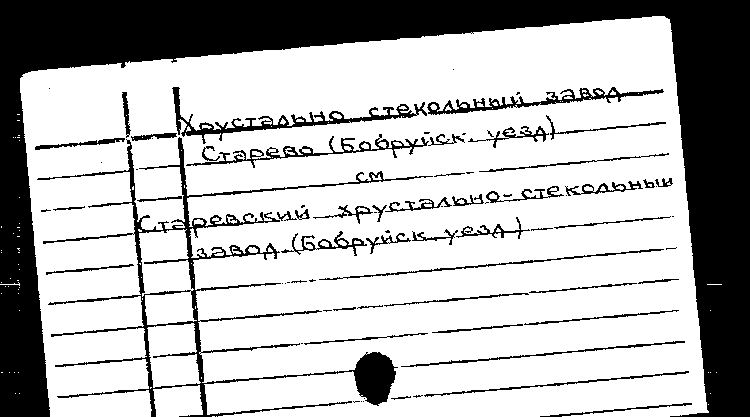 Хрустально стекольный завод
Старево (Бобруйск. уезд)
см
Старевский хрустально-стекольный
завод. (Бобруйск. уезд)